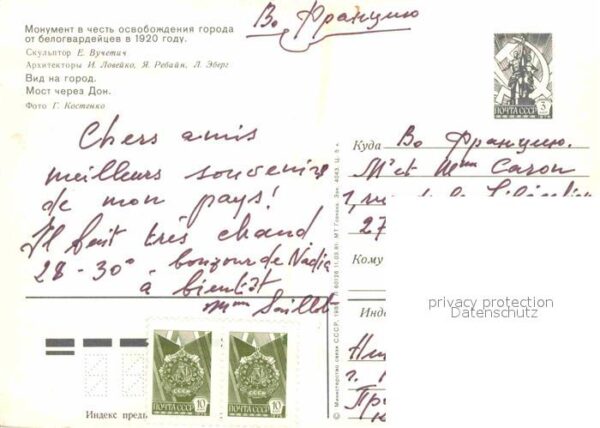 Во Францию
Монумент в честь освобождения города
от белогвардейцев в 1920 году.
Скульптор Е. Вучетич
Архитекторы И. Ловейко, Я. Ребайн, Л. Эберг
Вид на город.
Мост через Дон.
Фото Г. Костенко
Chers amis
meilleurs souvenirs
de mon pays!
Il fait très chaud
28-30° - bonjour de Nadia
à bientôt
ПОЧТА СССР
3
Куда Во Францию.
Mr et Mme Caron
1, rue de la
27
Кому
privacy protection
Datenschutz
Инде
г.
ПОЧТА СССР 10
ПОЧТА СССР 10
Индекс пред
Министерство связи СССР.